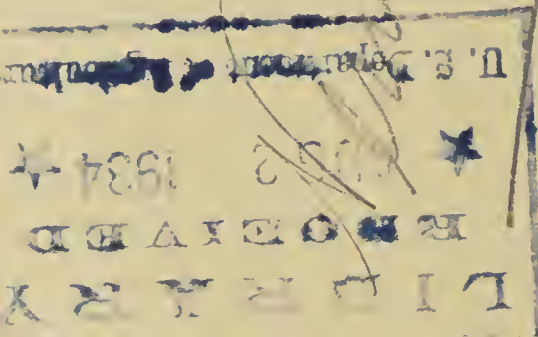 LIBRARY
RECEIVED
★ 2 1934 ★
U. S. Department of Agriculture